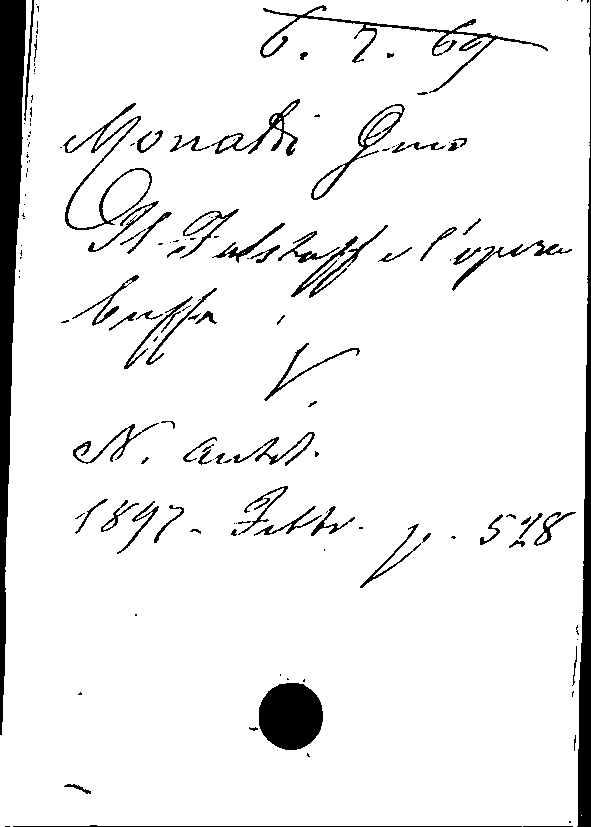 6. 7. 69
Monaldi Gino
Il Falstaff e l'opera
buffa.
V.
N. Antol.
1897 - Febbr. p. 528